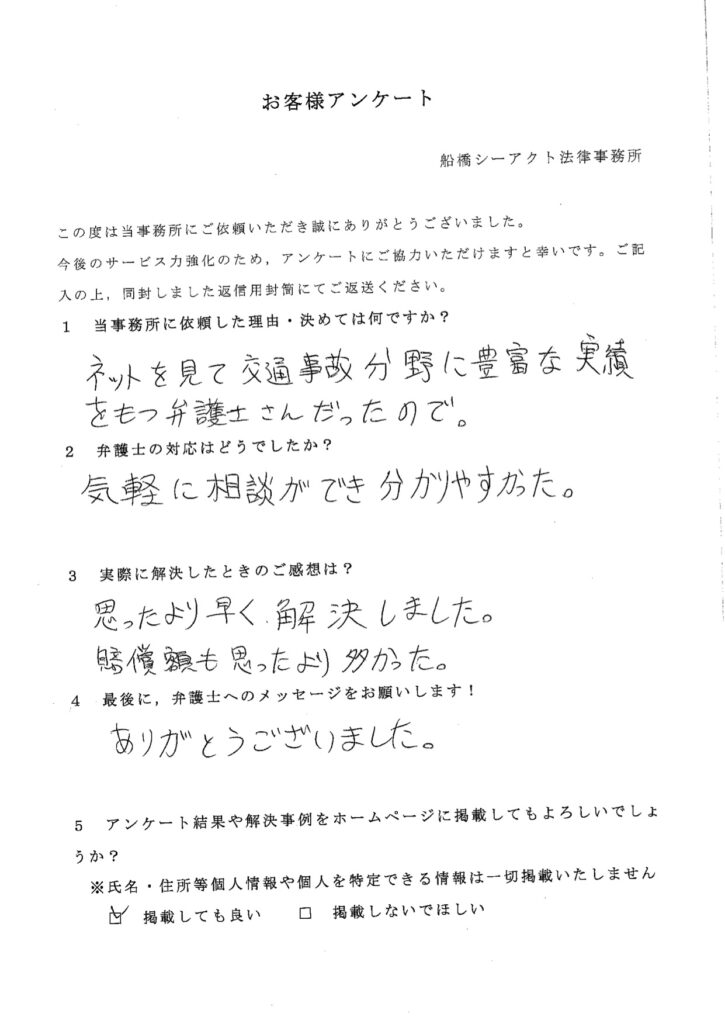 お客様アンケート
船橋シーアクト法律事務所
この度は当事務所にご依頼いただき誠にありがとうございました。
今後のサービス力強化のため，アンケートにご協力いただけますと幸いです。ご記
入の上，同封しました返信用封筒にてご返送ください。
1　当事務所に依頼した理由・決めては何ですか？
ネットを見て交通事故分野に豊富な実績
をもつ弁護士さんだったので。
2　弁護士の対応はどうでしたか？
気軽に相談ができ分かりやすかった。
3　実際に解決したときのご感想は？
思ったより早く解決しました。
賠償額も思ったより多かった。
4　最後に，弁護士へのメッセージをお願いします！
ありがとうございました。
5　アンケート結果や解決事例をホームページに掲載してもよろしいでしょ
うか？
※氏名・住所等個人情報や個人を特定できる情報は一切掲載いたしません
☑　掲載しても良い　□　掲載しないでほしい